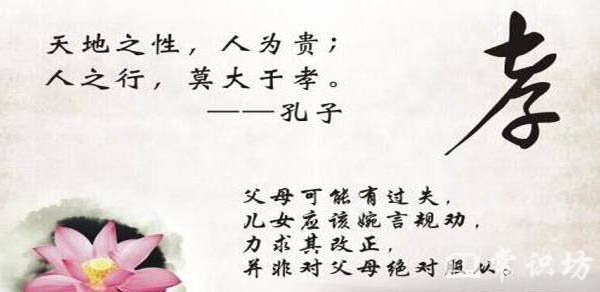 天地之性，人为贵；
人之行，莫大于孝。
——孔子
孝
父母可能有过失，
儿女应该婉言规劝，
力求其改正，
并非对父母绝对服从。
常识坊